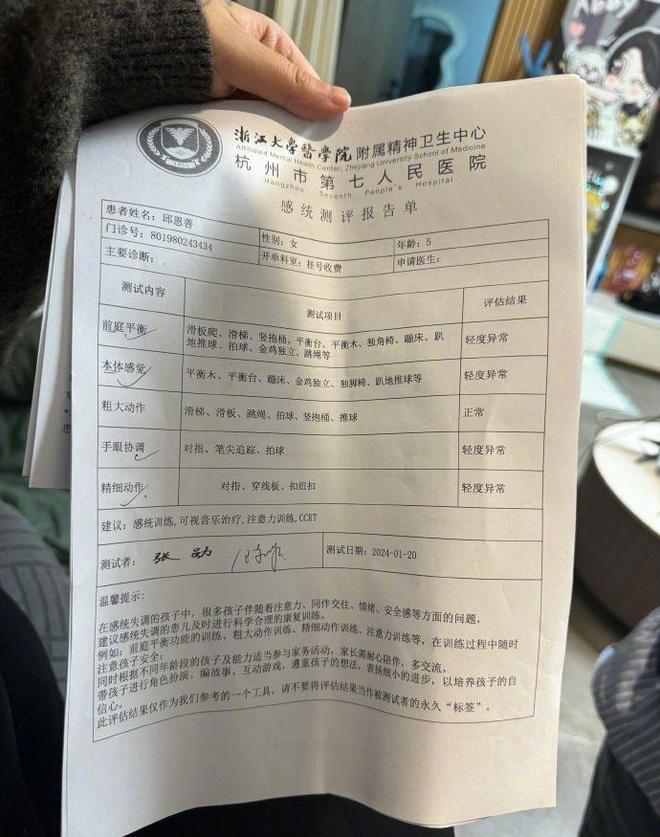 Abby
浙江大学医学院附属精神卫生中心
Affiliated Mental Health Center, Zhejiang University School of Medicine
杭州市第七人民医院
Hangzhou Seventh People's Hospital
感统测评报告单
患者姓名：邱恩善 性别：女 年龄：5
门诊号：801980243434 开单科室：挂号收费 申请医生：
主要诊断：
测试内容 测试项目 评估结果
前庭平衡 滑板爬、滑梯、竖抱桶、平衡台、平衡木、独角椅、蹦床、趴
地推球、拍球、金鸡独立、跳绳等 轻度异常
本体感觉 平衡木、平衡台、蹦床、金鸡独立、独脚椅、趴地推球等 轻度异常
粗大动作 滑梯、滑板、跳绳、拍球、竖抱桶、推球 正常
手眼协调 对指、笔尖追踪、拍球 轻度异常
精细动作 对指、穿线板、扣纽扣 轻度异常
建议：感统训练,可视音乐治疗,注意力训练,CCRT
测试者：张勋 测试日期：2024-01-20
温馨提示：
在感统失调的孩子中，很多孩子伴随着注意力、同伴交往、情绪、安全感等方面的问题，
建议感统失调的患儿及时进行科学合理的康复训练。
例如：前庭平衡功能的训练、粗大动作训练、精细动作训练、注意力训练等，在训练过程中随时
注意孩子安全；
同时根据不同年龄段的孩子及能力适当参与家务活动，家长需耐心陪伴，多交流，
带孩子进行角色扮演。编故事、互动游戏，遵重孩子的想法，表扬细小的进步，以培养孩子的自
信心。
此评估结果仅作为我们参考的一个工具，请不要将评估结果当作被测试者的永久“标签”。